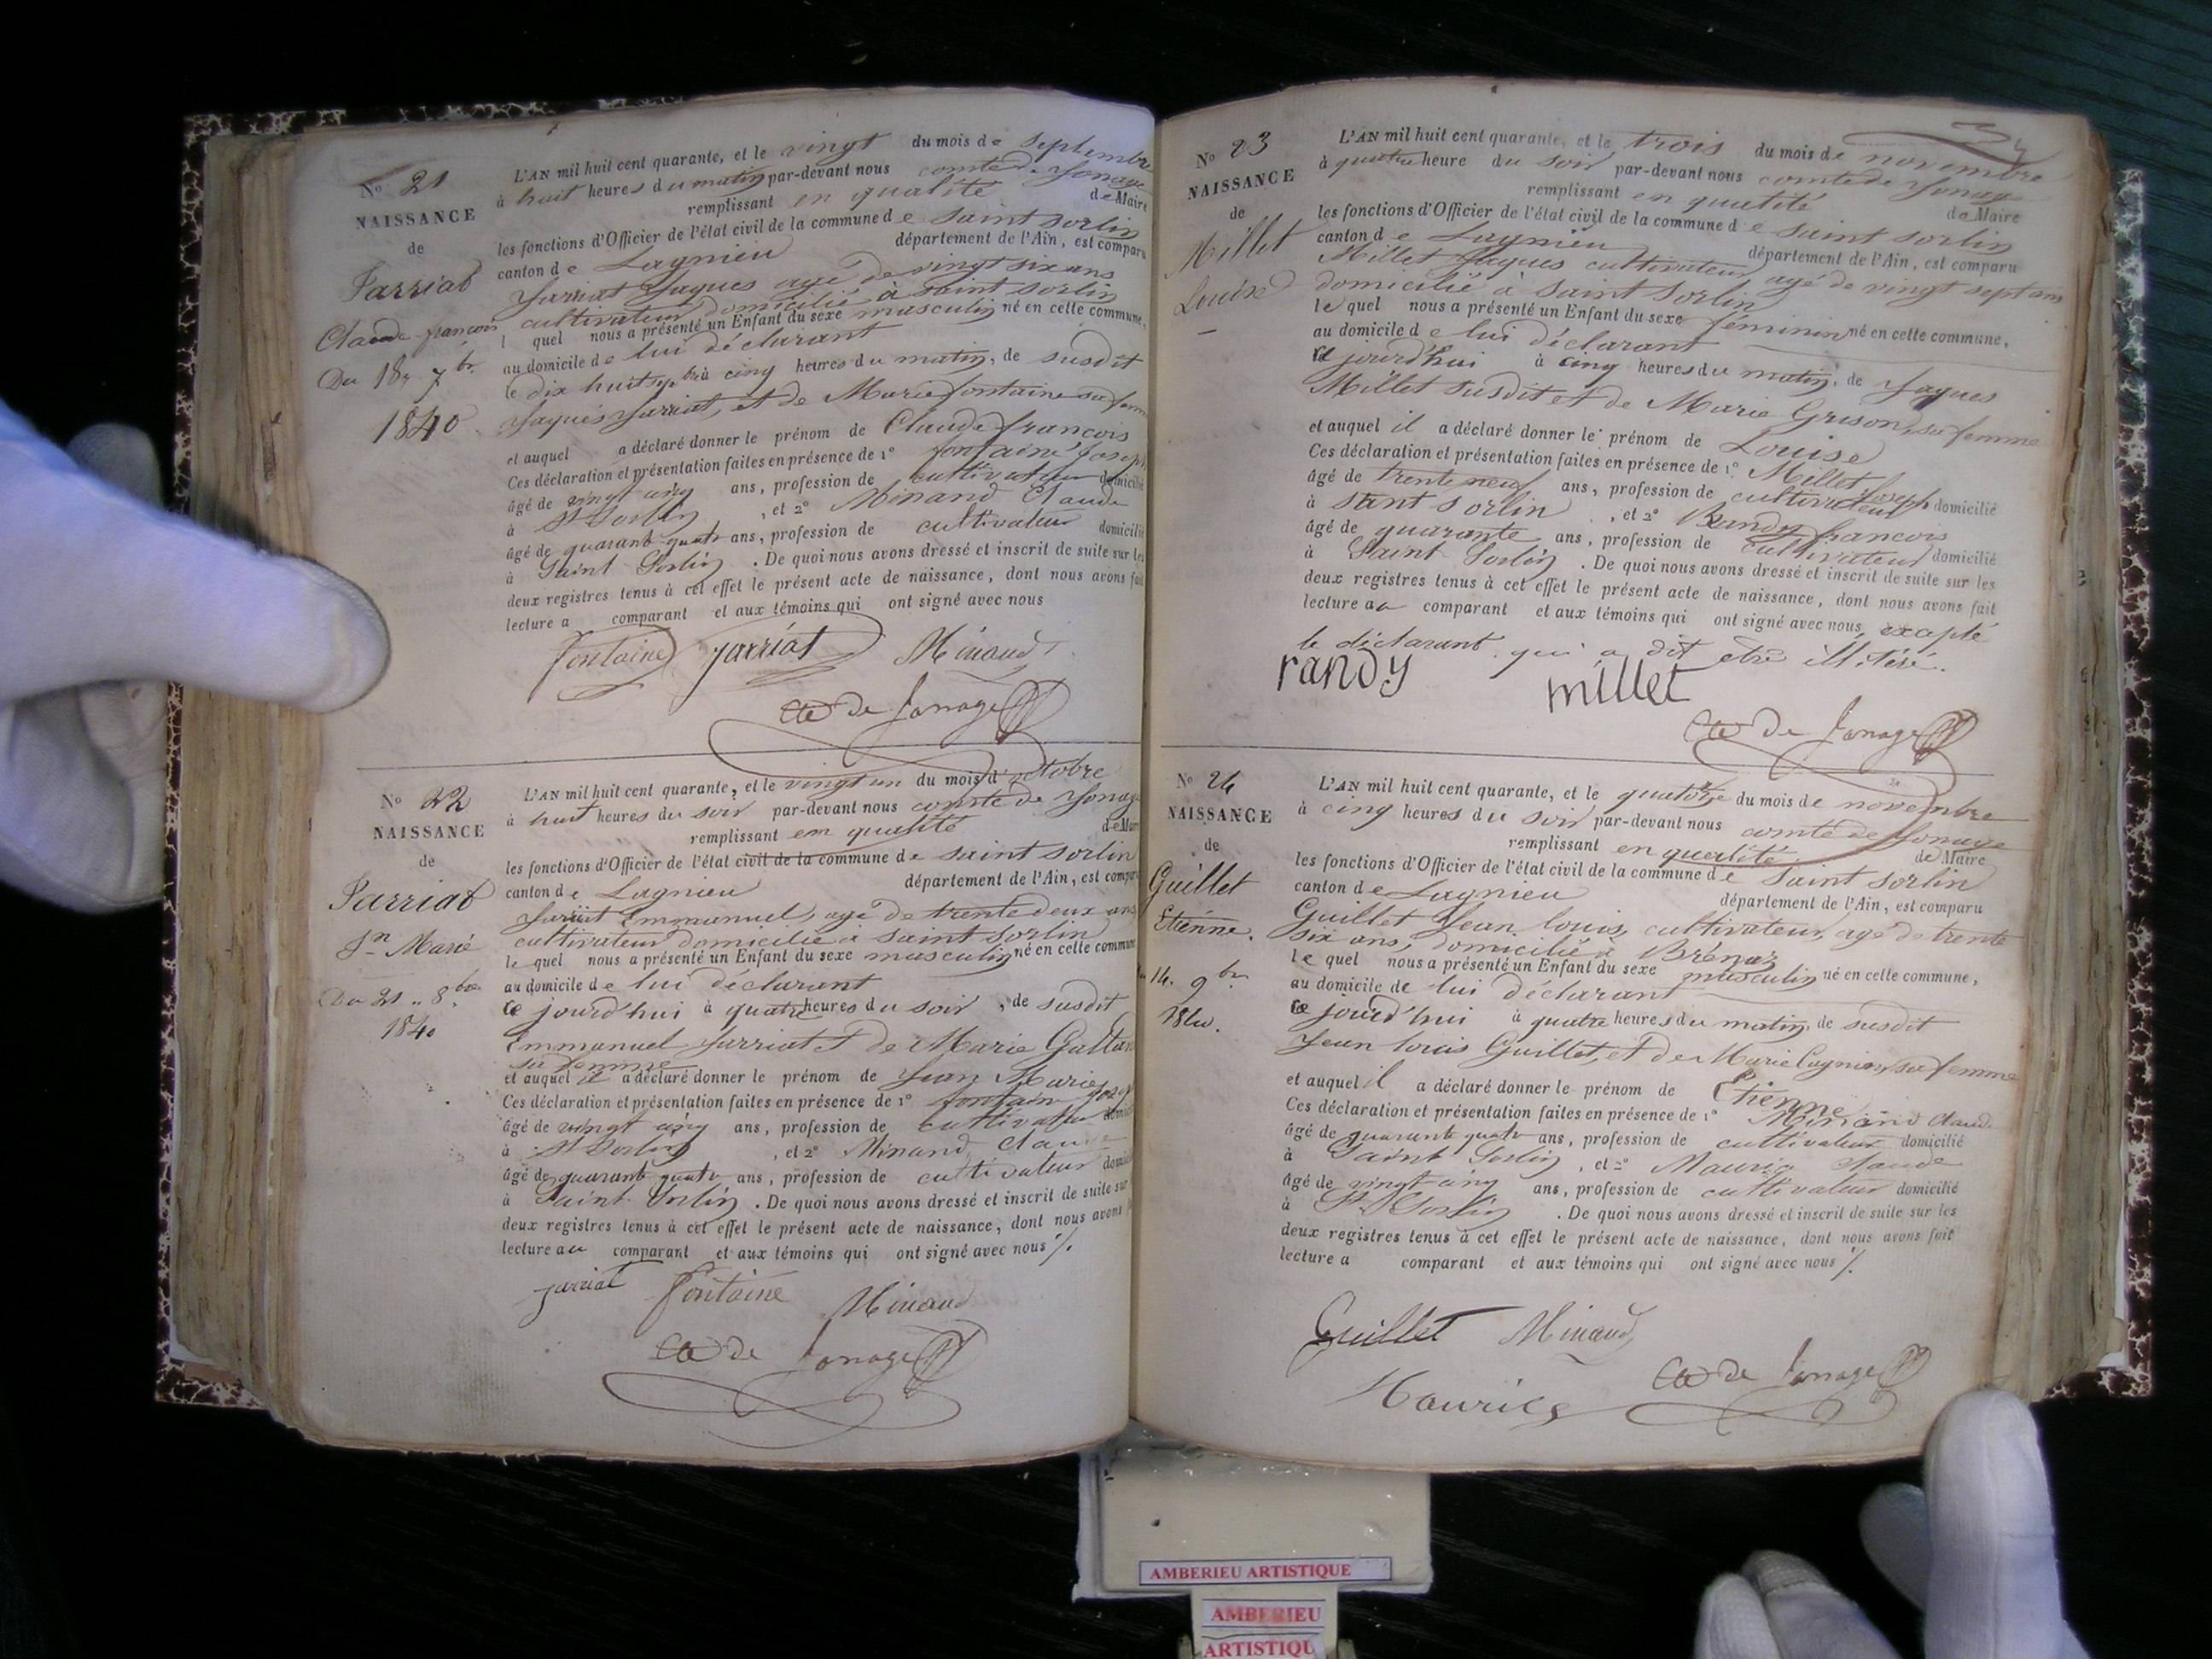 N° 21
NAISSANCE
de
Jarriat
Claude françois
Du 18 7bre
1840
L'AN mil huit cent quarante, et le vingt du mois de septembre
à huit heures du matin par-devant nous comte de Jonage
remplissant en qualité de Maire
les fonctions d'Officier de l'état civil de la commune de saint sorlin
canton de Lagnieu département de l'Ain, est comparu
Jarriat Jaques agé de vingt six ans
cultivateur domicilié à saint sorlin
l quel nous a présenté un Enfant du sexe masculin né en cette commune,
au domicile de lui déclarant
le dix huit 7bre à cinq heures du matin, de susdit
Jaques Jarriat, et de Marie fontaine sa femme
et auquel a déclaré donner le prénom de Claude françois
Ces déclaration et présentation faites en présence de 1° fontaine Joseph
âgé de vingt cinq ans, profession de cultivateur domicilié
à St Sorlin, et 2° Minand Claude
âgé de quarant quatr ans, profession de cultivateur domicilié
à Saint Sorlin. De quoi nous avons dressé et inscrit de suite sur les
deux registres tenus à cet effet le présent acte de naissance, dont nous avons fait
lecture a comparant et aux témoins qui ont signé avec nous
fontaine jarriat Minand
Cte de Jonage
N° 22
NAISSANCE
de
Jarriat
Jn Marie
Du 21 8bre
1840
L'AN mil huit cent quarante, et le vingt un du mois d'octobre
à huit heures du soir par-devant nous comte de Jonage
remplissant en qualité de Maire
les fonctions d'Officier de l'état civil de la commune de saint sorlin
canton de Lagnieu département de l'Ain, est comparu
Jarriat Emmanuel, agé de trente deux ans
cultivateur domicilié à saint sorlin
le quel nous a présenté un Enfant du sexe masculin né en cette commune
au domicile de lui déclarant
ce jourd'hui à quatre heures du soir, de susdit
Emmanuel Jarriat et de Marie
sa femme
et auquel il a déclaré donner le prénom de Jean Marie
Ces déclaration et présentation faites en présence de 1° fontaine Josep
âgé de vingt cinq ans, profession de cultivateur domicilié
à St Sorlin, et 2° Minand Claude
âgé de quarant quatr ans, profession de cultivateur domicilié
à Saint Sorlin. De quoi nous avons dressé et inscrit de suite sur
deux registres tenus à cet effet le présent acte de naissance, dont nous avons
lecture au comparant et aux témoins qui ont signé avec nous /.
jarriat fontaine Minand
Cte de Jonage
N° 23
NAISSANCE
de
Millet
Louise
L'AN mil huit cent quarante, et le trois du mois de novembre
à quatre heure du soir par-devant nous comte de Jonage
remplissant en qualité de Maire
les fonctions d'Officier de l'état civil de la commune de saint sorlin
canton de Lagnieu département de l'Ain, est comparu
Millet Jaques cultivateur agé de vingt sept ans
domicilié à saint sorlin
le quel nous a présenté un Enfant du sexe féminin né en cette commune,
au domicile de lui déclarant
ce jourd'hui à cinq heures du matin, de Jaques
Millet susdit et de Marie Grison, sa femme
et auquel il a déclaré donner le prénom de Louise
Ces déclaration et présentation faites en présence de 1° Millet Joseph
âgé de trente neuf ans, profession de cultivateur domicilié
à saint sorlin, et 2° Randy francois
âgé de quarante ans, profession de cultivateur domicilié
à Saint Sorlin. De quoi nous avons dressé et inscrit de suite sur les
deux registres tenus à cet effet le présent acte de naissance, dont nous avons fait
lecture au comparant et aux témoins qui ont signé avec nous, excepté
le déclarant qui a dit etre illitéré.
randy millet
Cte de Jonage
N° 24
NAISSANCE
de
Guillet
Etienne.
Du 14. 9bre
1840.
L'AN mil huit cent quarante, et le quatorze du mois de novembre
à cinq heures du soir par-devant nous comte de Jonage
remplissant en qualité de Maire
les fonctions d'Officier de l'état civil de la commune de saint sorlin
canton de Lagnieu département de l'Ain, est comparu
Guillet Jean louis, cultivateur, agé de trente
six ans, domicilié à Brénaz
le quel nous a présenté un Enfant du sexe masculin né en cette commune,
au domicile de lui déclarant
ce jourd'hui à quatre heures du matin, de susdit
Jean louis Guillet, et de Marie Cagnin, sa femme
et auquel il a déclaré donner le prénom de Etienne
Ces déclaration et présentation faites en présence de 1° Minand Claude
âgé de quarante quatr ans, profession de cultivateur domicilié
à Saint Sorlin, et 2° Mauric Claude
âgé de vingt cinq ans, profession de cultivateur domicilié
à St Sorlin. De quoi nous avons dressé et inscrit de suite sur les
deux registres tenus à cet effet le présent acte de naissance, dont nous avons fait
lecture a comparant et aux témoins qui ont signé avec nous /.
Guillet Minand
Maurice Cte de Jonage
AMBERIEU ARTISTIQUE
AMBERIEU
ARTISTIQU